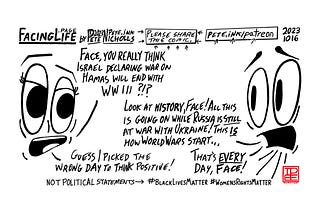 FACINGLIFE
PAGE
by PETE NICHOLLS
PETE.INK
PLEASE SHARE
THE COMIC.
PETE.INK/patreon
2023
1016
FACE, YOU REALLY THINK
ISRAEL DECLARING WAR ON
HAMAS WILL END WITH
WW III ?!?
LOOK AT HISTORY, FACE! ALL THIS
IS GOING ON WHILE RUSSIA IS STILL
AT WAR WITH UKRAINE! THIS IS
HOW WORLD WARS START...
GUESS I PICKED THE
WRONG DAY TO THINK POSITIVE!
THAT'S EVERY
DAY, FACE!
NOT POLITICAL STATEMENTS→ #BLACKLIVESMATTER #WOMENSRIGHTSMATTER